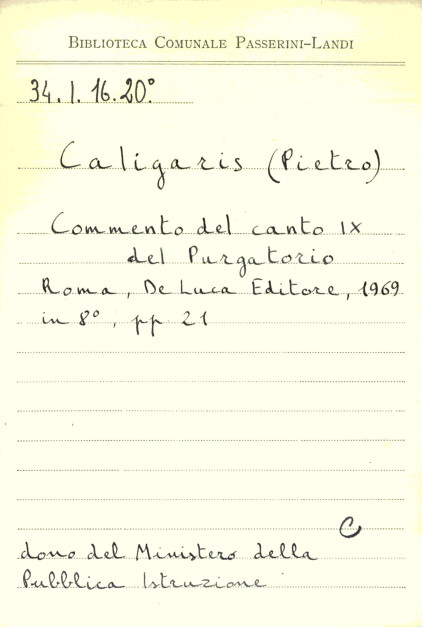 BIBLIOTECA COMUNALE PASSERINI-LANDI
34.I.16.20°
Caligaris (Pietro)
Commento del canto IX
del Purgatorio
Roma, De Luca Editore, 1969
in 8°, pp 21
C
dono del Ministero della
Pubblica Istruzione